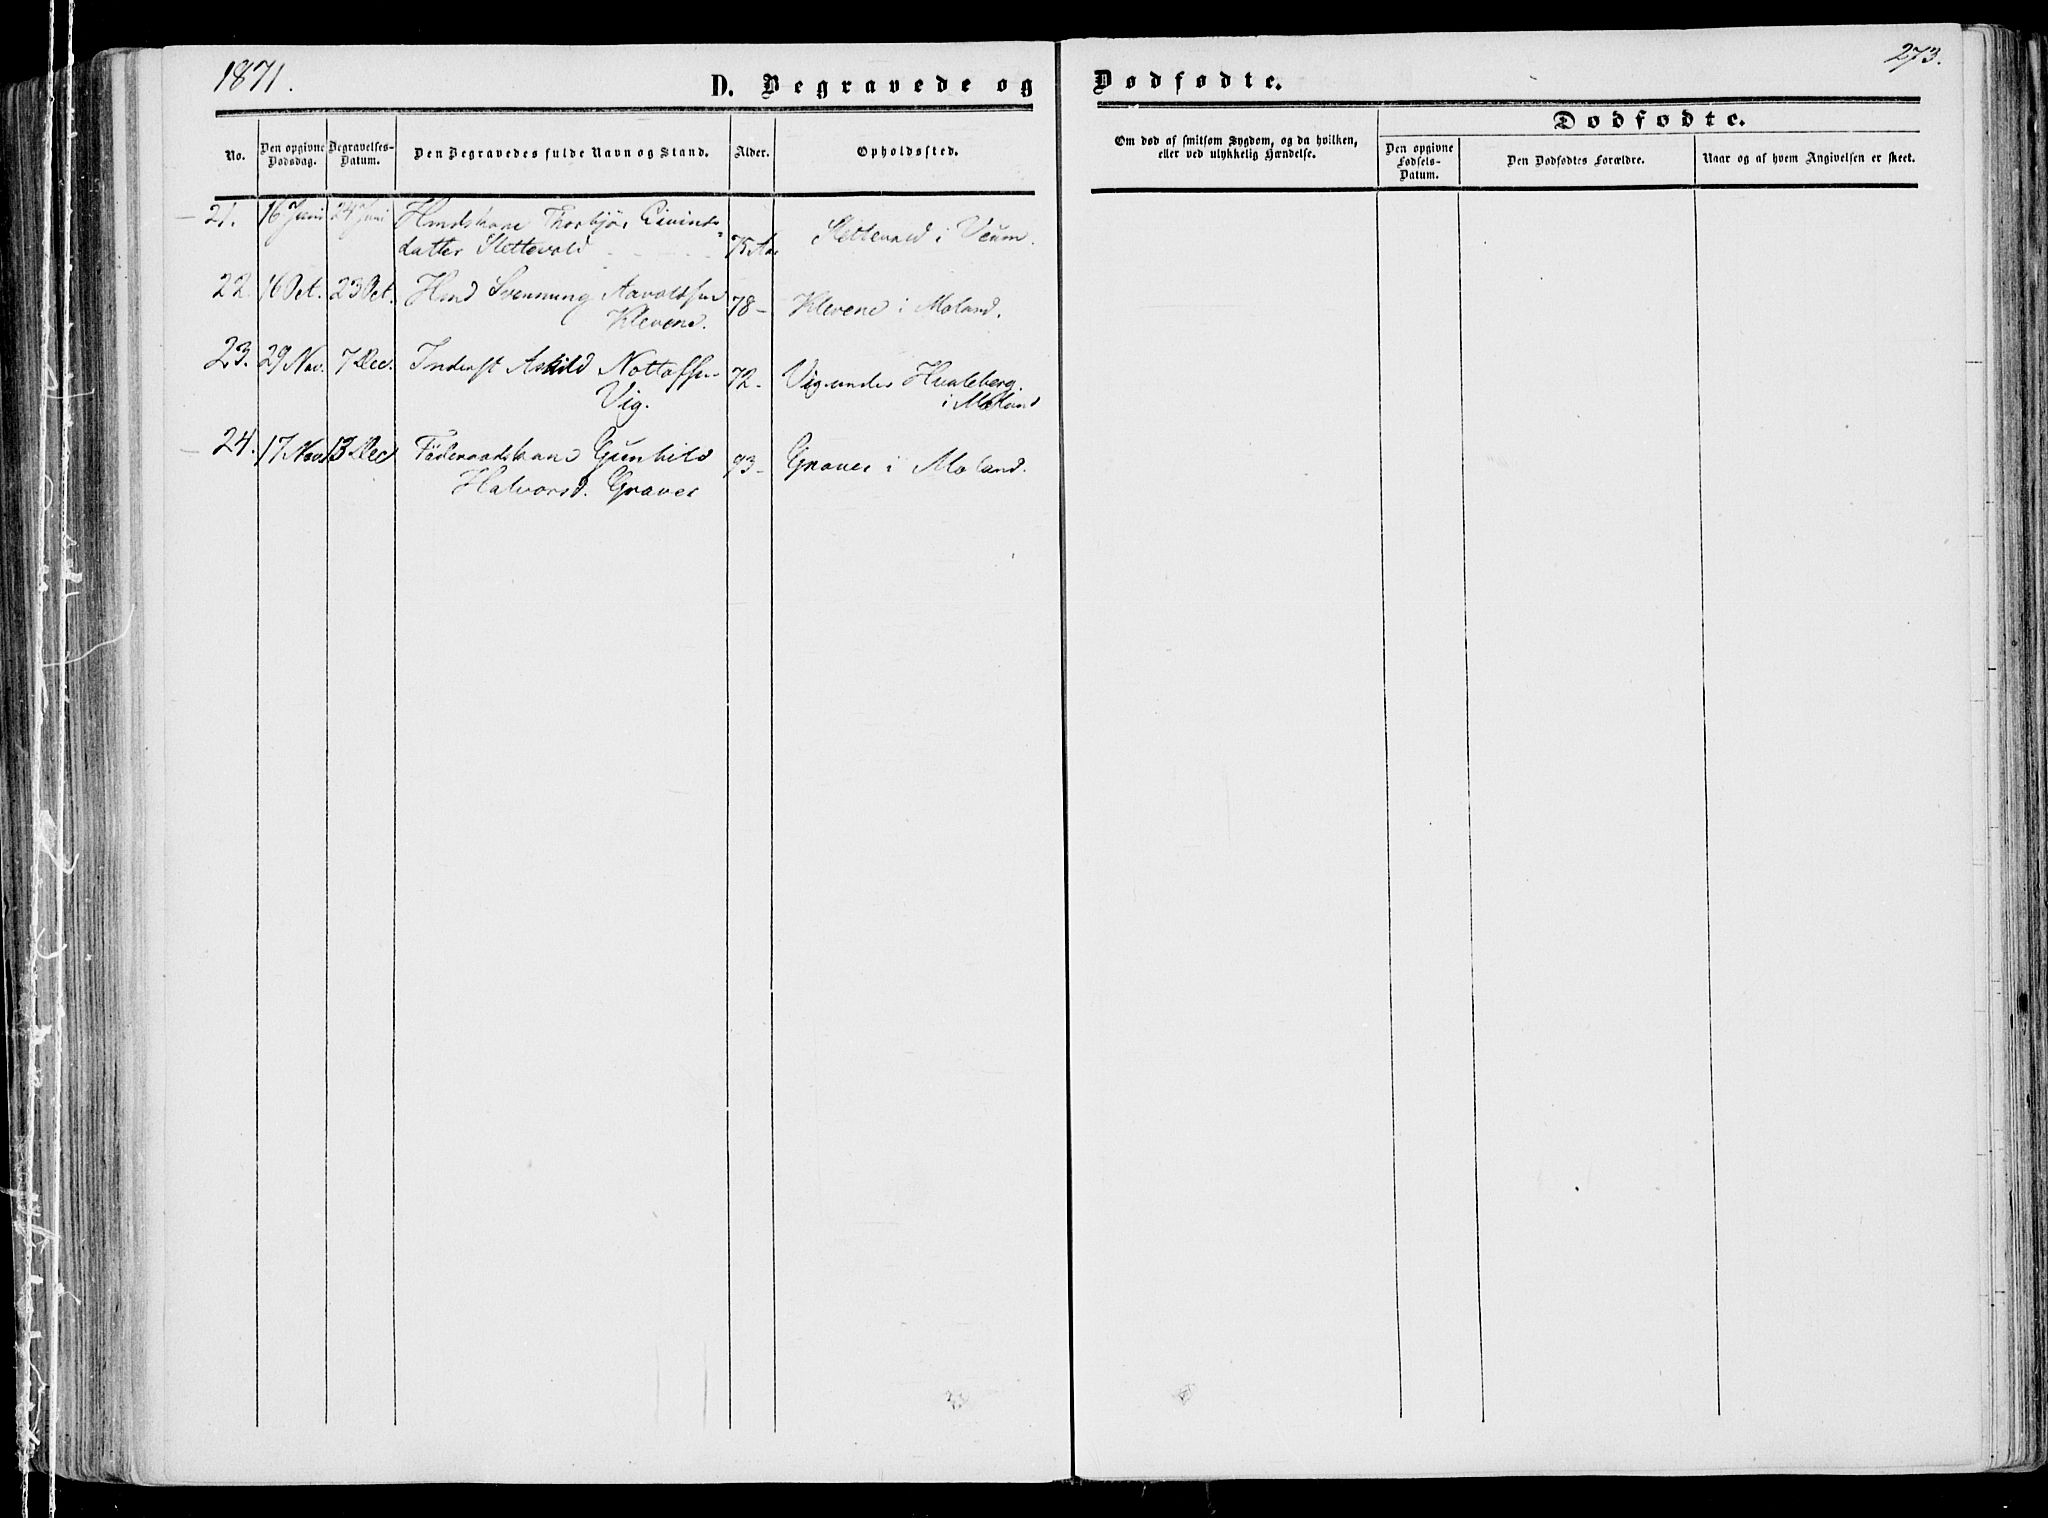 1871.
D. Begravede og Dødfødte.
273.
No.
Den opgivne Dødsdag.
Begravelses-Datum.
Den Begravedes fulde Navn og Stand.
Alder.
Opholdssted.
Om død af smitsom Sygdom, og da hvilken, eller ved ulykkelig Hændelse.
Dødfødte.
Den opgivne Fødsels-Datum.
Den Dødfødtes Forældre.
Naar og af hvem Angivelsen er skeet.
21. 16 Juni 24 Juni Hmdskone Thorbjør Eivinds-
datter Slettevold 75 Aar Slettevold i Veum.
22. 16 Oct. 23 Oct. Hmd Svennung Aavoldsen 78 - Klevene i Moland.
Klevene.
23. 29 Nov. 7 Dec. Inderst Askild Nottolfsen 72 - Vig under Hvaleberg
Vig. i Moland
24. 17 Nov 13 Dec Föderaadskone Gunhild 93 - Graver i Moland.
Halvorsd. Graver